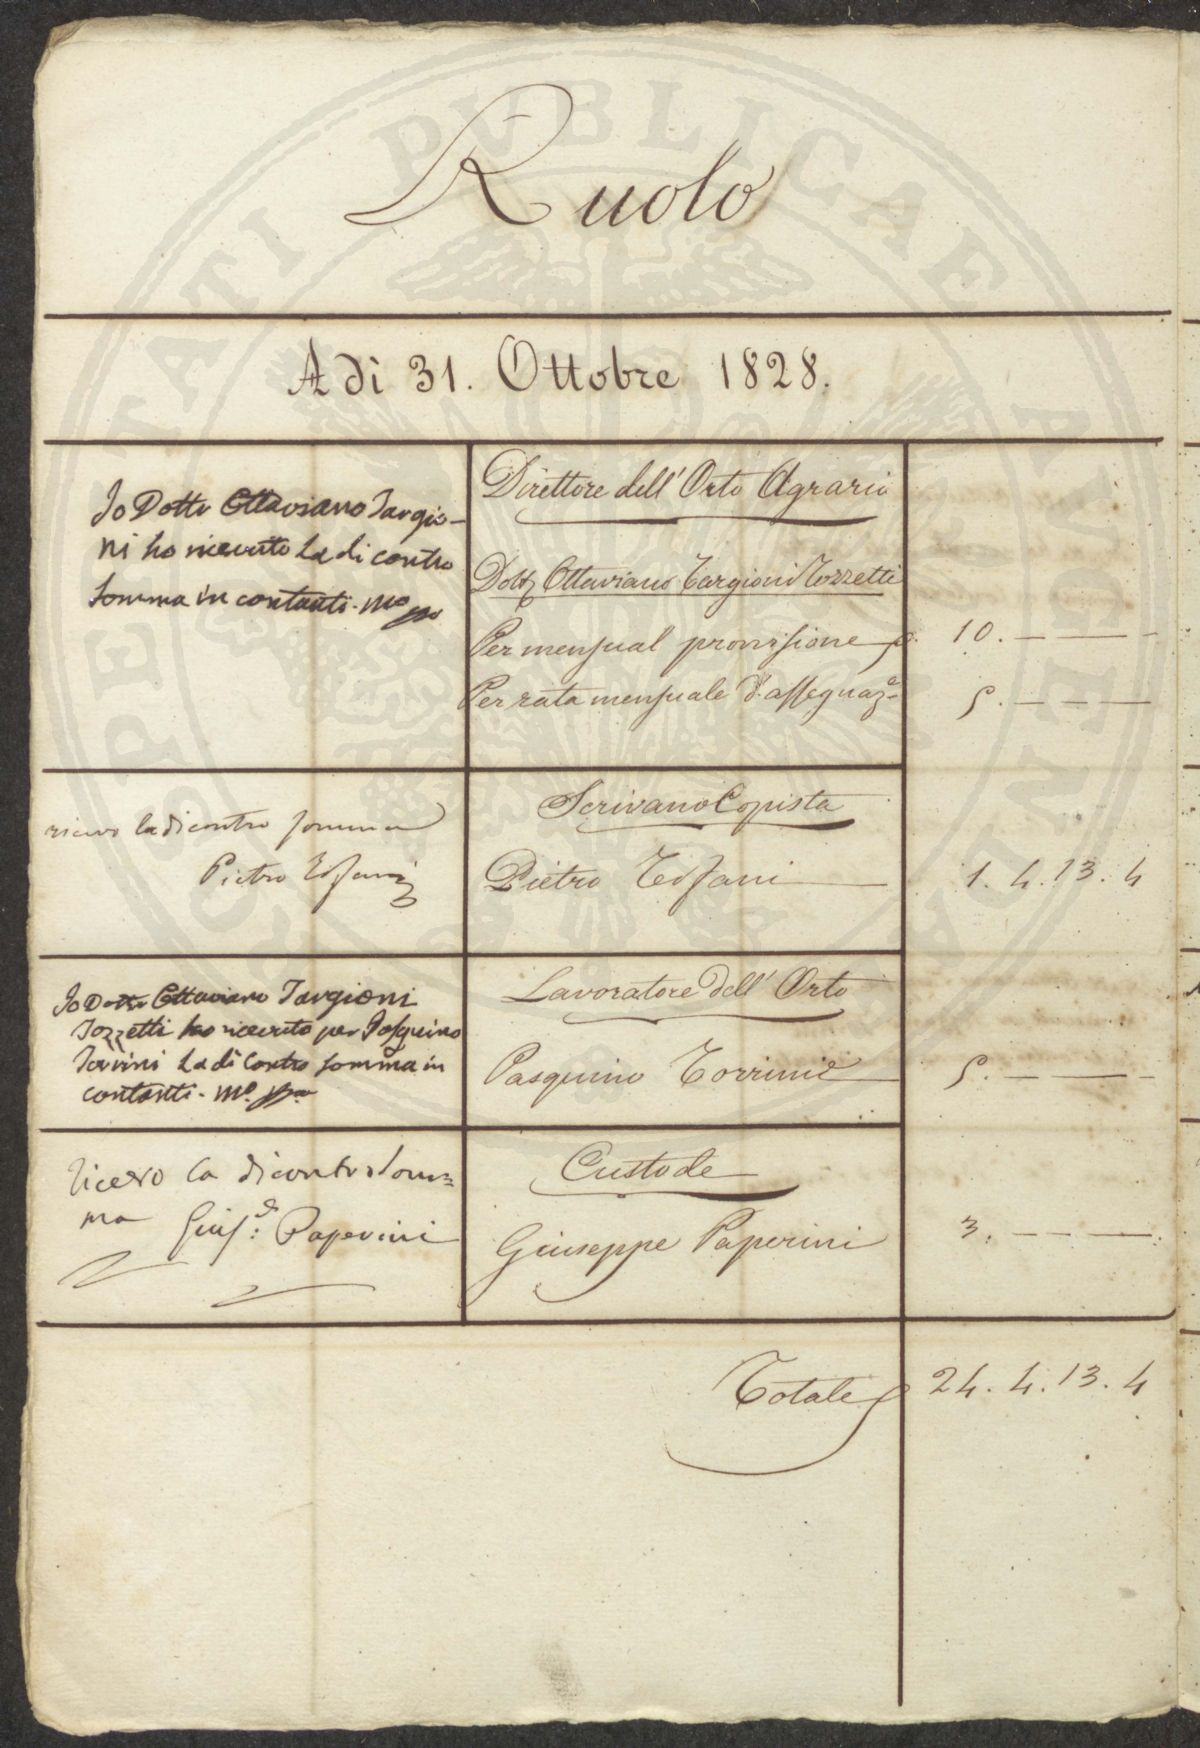 Ruolo
A dì 31. Ottobre 1828.
Io Dottr Ottaviano Targio-
ni ho ricevuto La di contro
Somma in contanti. Mo ppo
Direttore dell' Orto Agrario
Dottr Ottaviano Targioni Tozzetti
Per mensual provisione
10. — — —
Per rata mensuale d'assegnaze
5. — — —
ricevo la di contro somma
Pietro Tissani
Scrivano Copista
Pietro Tissani
1. 4. 13. 4
Io Dottr Ottaviano Targioni
Tozzetti ho ricevuto per Pasquino
Torrini La di Contro somma in
contanti. Mo. ppa
Lavoratore dell' Orto
Pasquino Torrini
5. — — —
Ricevo la di contro Som=
ma Giuse: Paperini
Custode
Giuseppe Paperini
3. — — —
Totale
24. 4. 13. 4
SPECTATI PUBLICAE